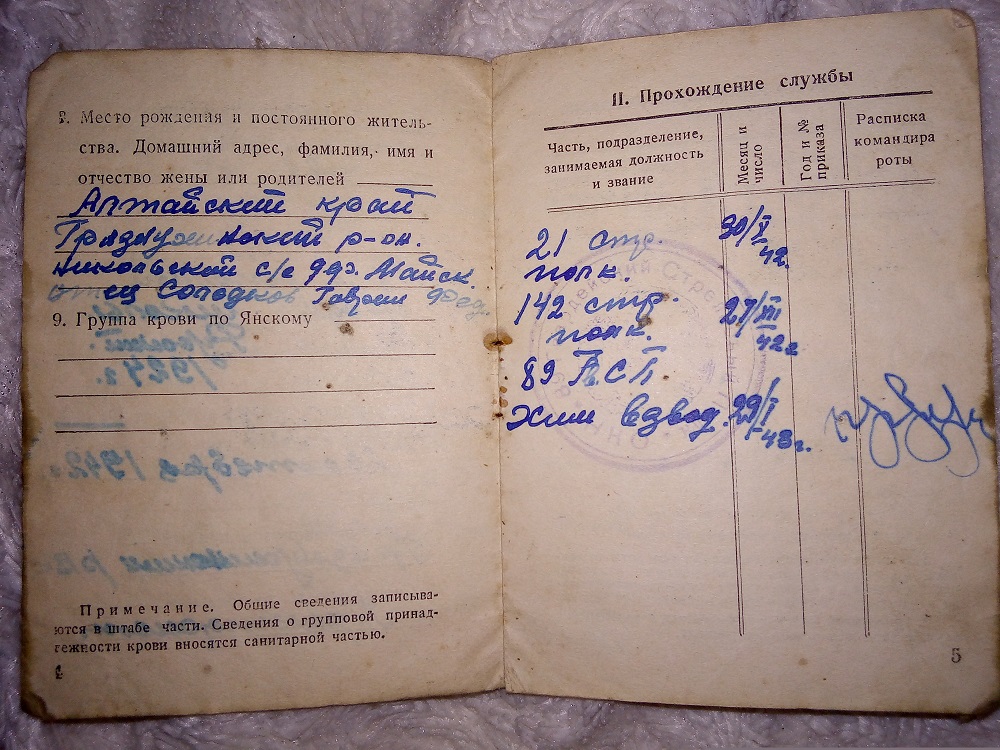 8. Место рождения и постоянного житель-
ства. Домашний адрес, фамилия, имя и
отчество жены или родителей
Алтайский край
Грязнухинский р-он.
Никольский с/с дер. Майск.
отец Солодков
9. Группа крови по Янскому
Примечание. Общие сведения записыва-
ются в штабе части. Сведения о групповой принад-
лежности крови вносятся санитарной частью.
4
II. Прохождение службы
Часть, подразделение,
занимаемая должность
и звание
Месяц и
число
Год и №
приказа
Расписка
командира
роты
21 стр. 30/X
полк. 42г.
142 стр. 27/XII
полк. 42г
89 АСП
Хим взвод. 29/I
43г.
5